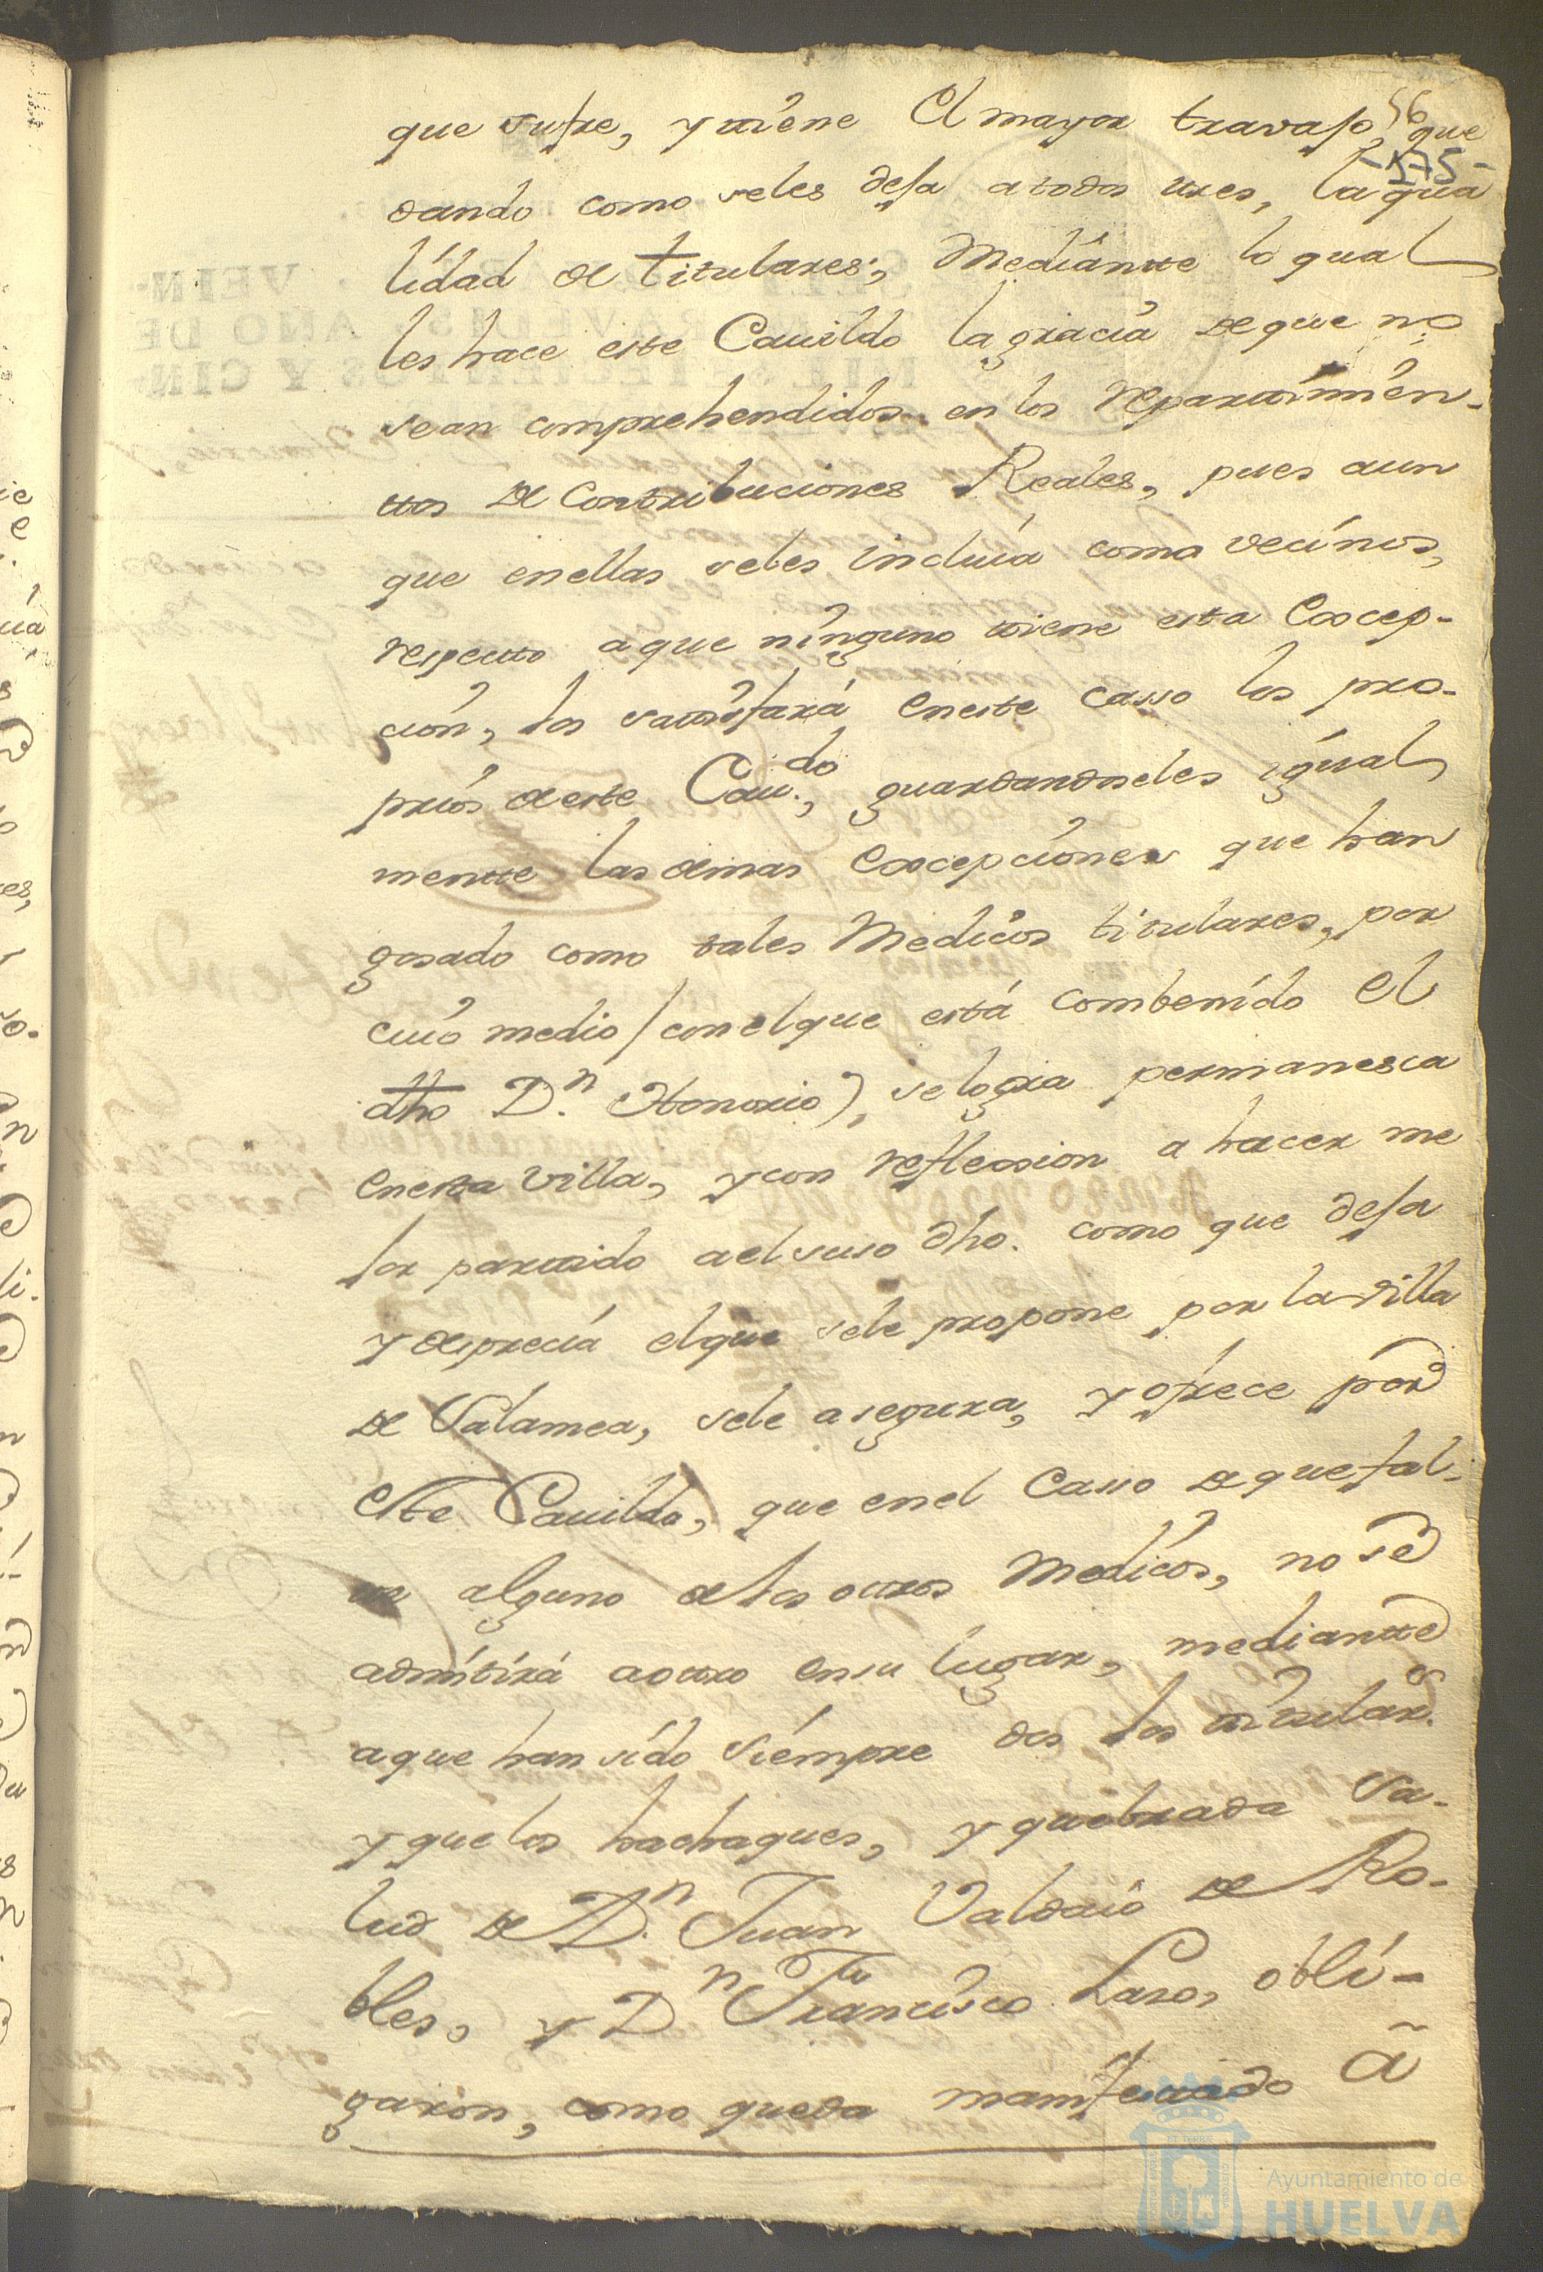 56
-175-
que sufre, y tiene El mayor travajo, que
dando como seles deja atodos tres, la qua
lidad de titulares; Mediantte lo qual
les hace este Cauildo la gracia de que no
sean comprehendidos en los repartimien-
ttos de Contribuciones Reales, pues aun
que enellas seles incluía como vecinos,
respectto aque ninguno tiene esta Excep-
ción, los satisfará eneste casso los pro-
prios deeste Cau.do, guardandoseles igual
mentte las demas Excepciones que han
gosado como tales Medicos titulares, por
cuio medio (con el que está combenido El
dho D.n Honorio), se logra permanesca
enesta villa, y con reflexion a hacer me
lor parttido a el suso dho. como que deja
y desprecia el que sele propone por la villa
de Salamea, sele asegura, y ofrece por
este Cauildo, que en el Casso de que fal-
te alguno de los otros Medicos, no se
admitirá a otro en su lugar, mediantte
a que han sido siempre dos los titular.es
y que los hachaques, y quebrada Sa-
lud de D.n Juan Valdaio de Ro-
bles, y D.n Francisco Laso, obli-
garon, como queda manifestado ã
Ayuntamiento de
HUELVA